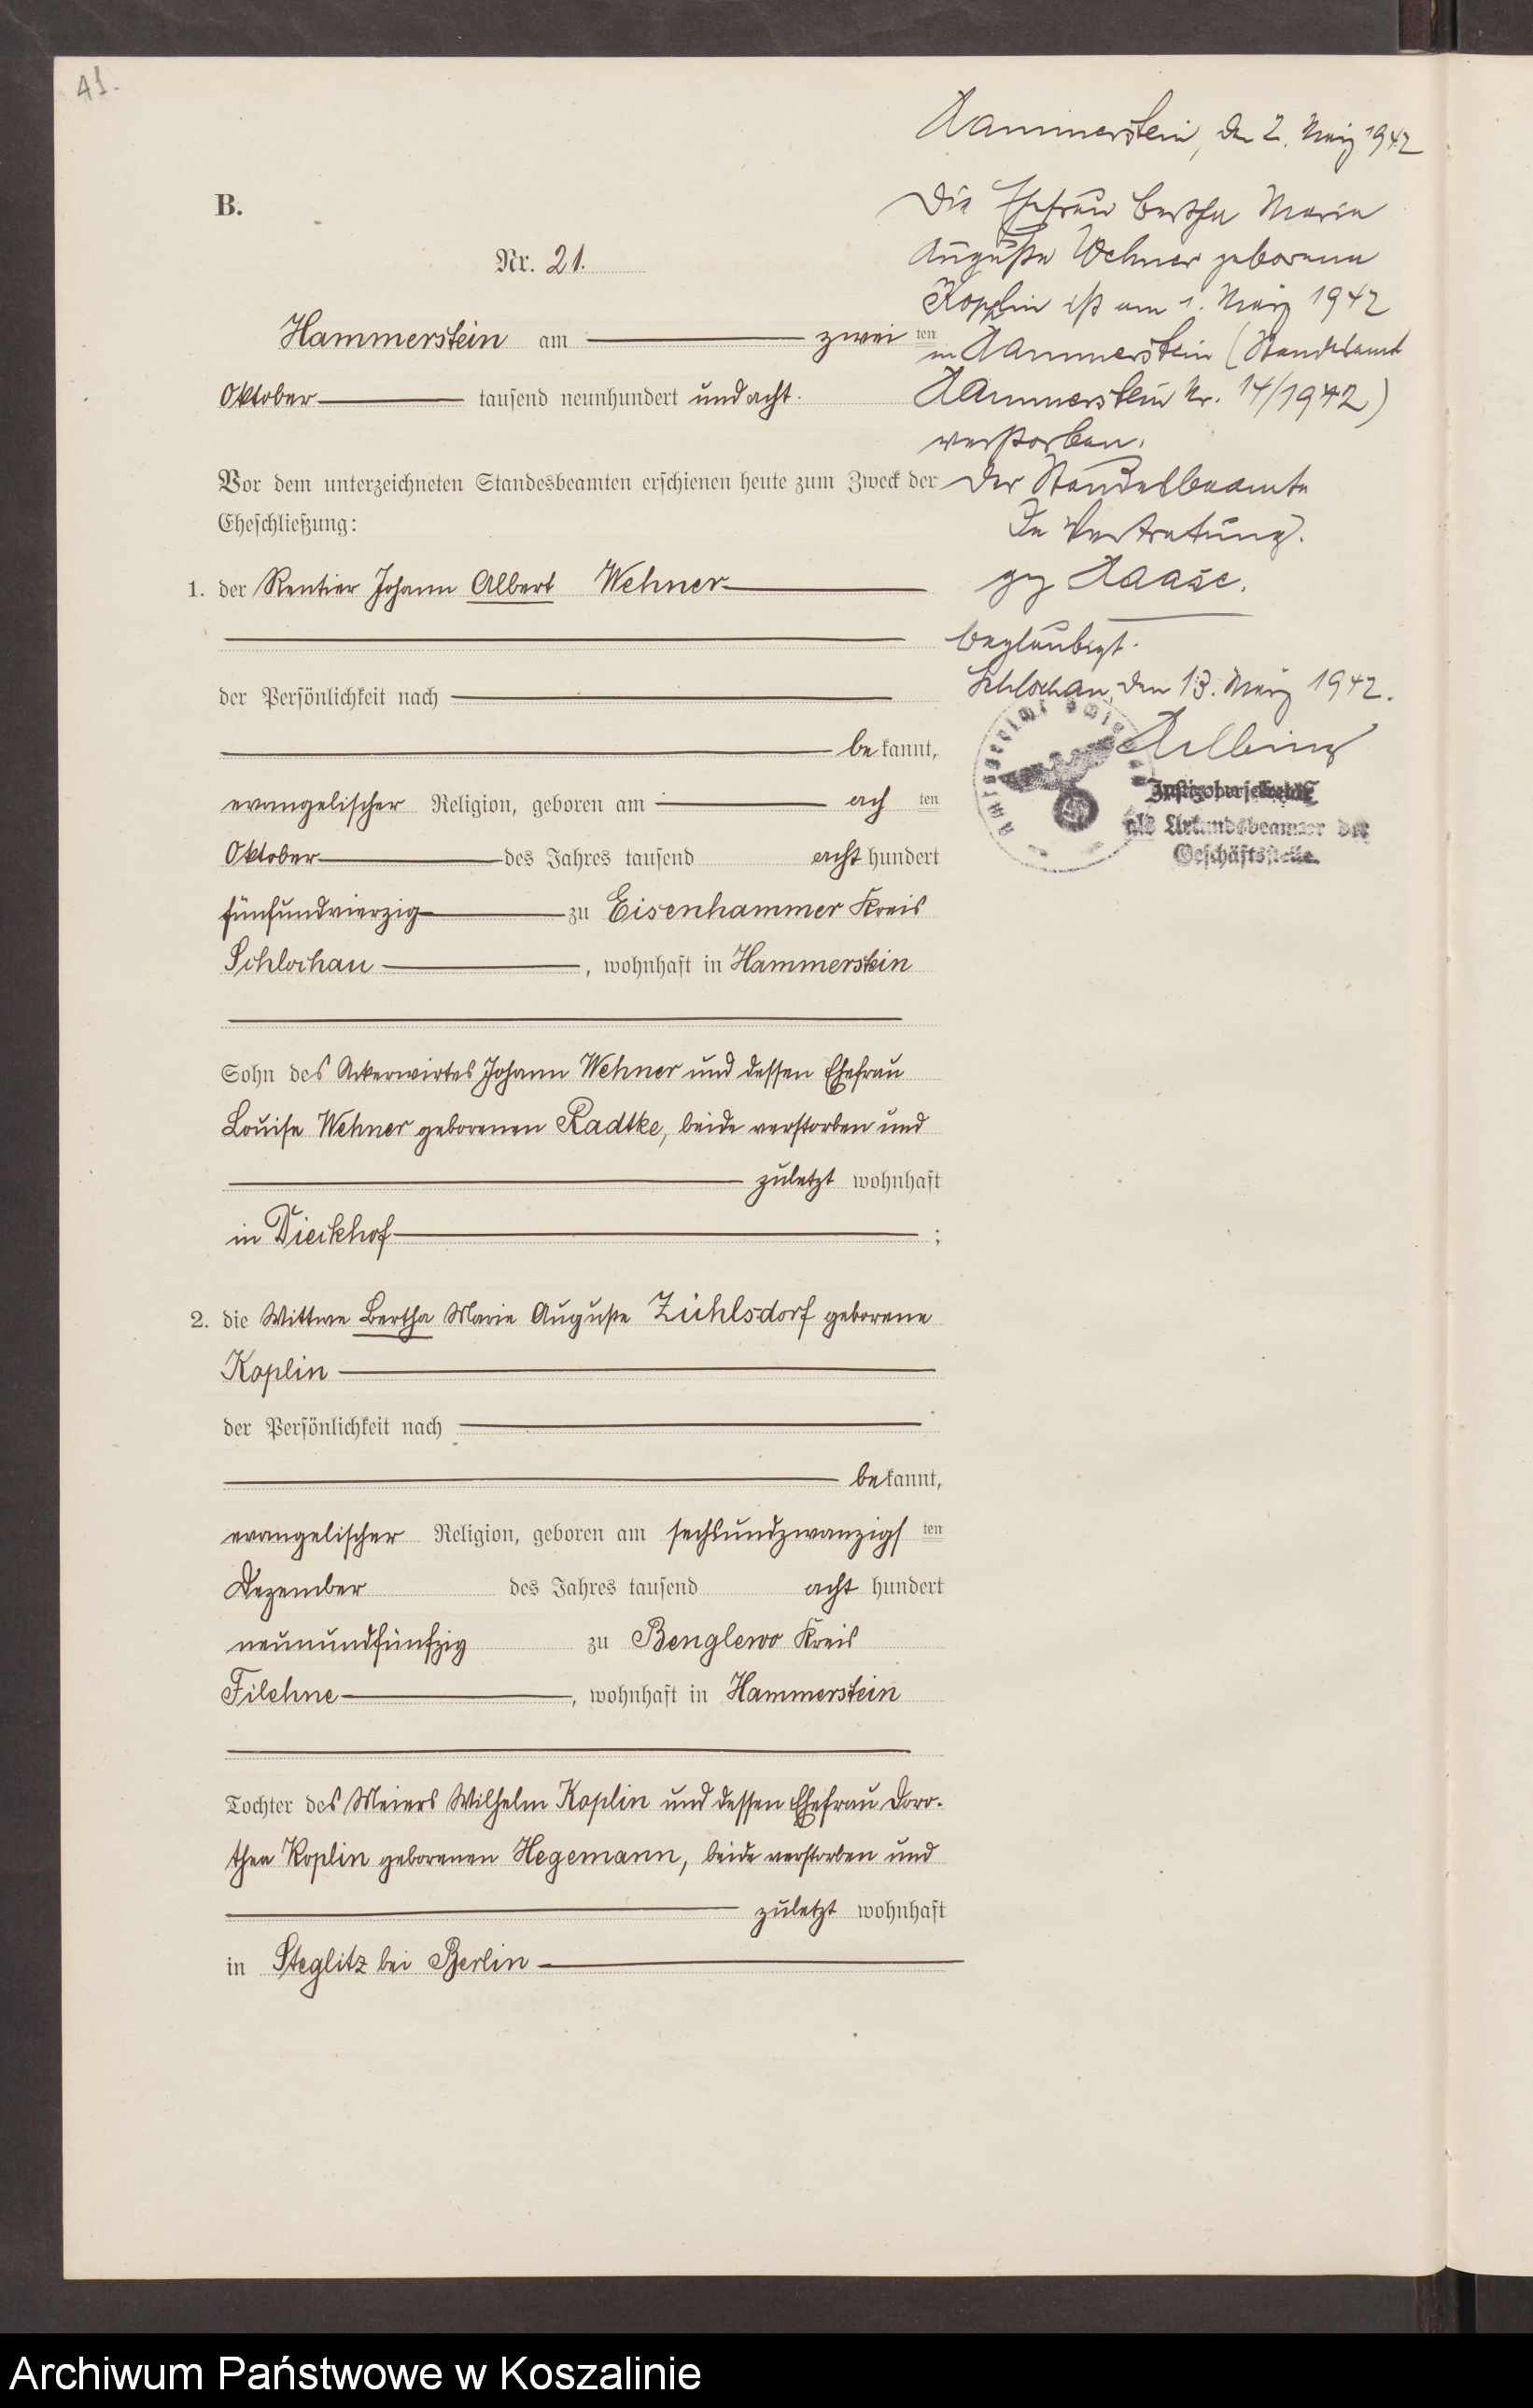 41.
B.
Nr. 21.
Hammerstein am zwei ten
Oktober tausend neunhundert und acht.
Vor dem unterzeichneten Standesbeamten erschienen heute zum Zweck der
Eheschließung:
1. der Rentier Johann Albert Wehner
der Persönlichkeit nach
be kannt,
evangelischer Religion, geboren am ach ten
Oktober des Jahres tausend acht hundert
fünfundvierzig zu Eisenhammer Kreis
Schlochau, wohnhaft in Hammerstein
Sohn des Ackerwirtes Johann Wehner und dessen Ehefrau
Louise Wehner geborenen Radtke, beide verstorben und
zuletzt wohnhaft
in Dieckhof ;
2. die Wittwe Bertha Marie Auguste Zühlsdorf geborene
Koplin
der Persönlichkeit nach
be kannt,
evangelischer Religion, geboren am sechsundzwanzigs ten
Dezember des Jahres tausend acht hundert
neunundfünfzig zu Benglewo Kreis
Filehne, wohnhaft in Hammerstein
Tochter des Meiers Wilhelm Koplin und dessen Ehefrau Doro-
thea Koplin geborenen Hegemann, beide verstorben und
zuletzt wohnhaft
in Steglitz bei Berlin
Hammerstein, den 2. März 1942
Die Ehefrau Bertha Marie
Auguste Wehner geborene
Kopplin ist am 1. März 1942
in Hammerstein (Standesamt
Hammerstein Nr. 14/1942)
verstorben.
Der Standesbeamte
In Vertretung.
gez Haase.
Beglaubigt.
Schlochau, den 13. März 1942.
Justizobersekretär
als Urkundsbeamter der
Geschäftsstelle.
Archiwum Państwowe w Koszalinie